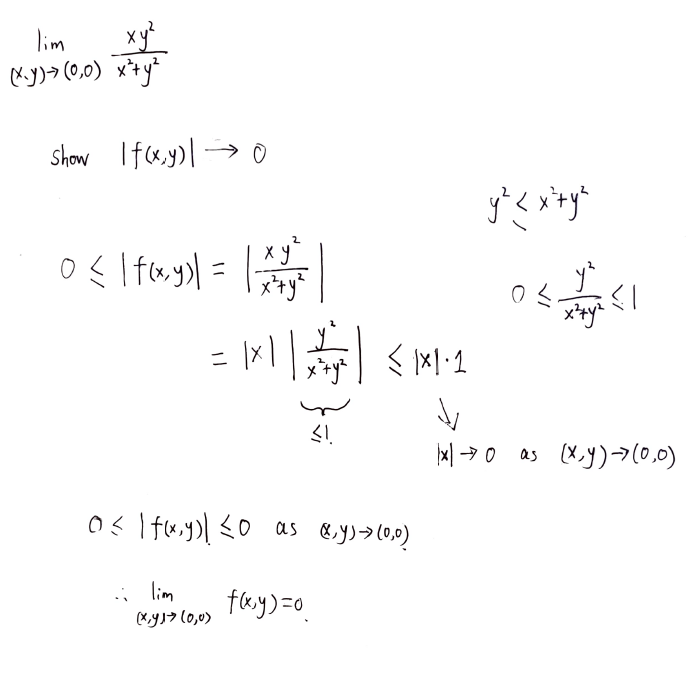 lim (x,y)→(0,0) xy²/(x²+y²)
show |f(x,y)| → 0
y² ≤ x²+y²
0 ≤ |f(x,y)| = |xy²/(x²+y²)|
0 ≤ y²/(x²+y²) ≤ 1
= |x| |y²/(x²+y²)| ≤ |x|·1
≤1.
|x| → 0 as (x,y)→(0,0)
0 ≤ |f(x,y)| ≤ 0 as (x,y)→(0,0).
∴ lim (x,y)→(0,0) f(x,y)=0.